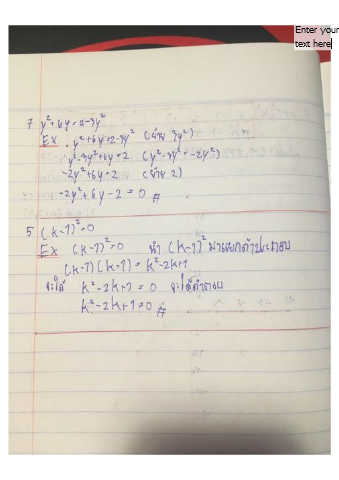 Enter your
text here
7 y²+6y=2-3y²
Ex . y²+6y=2-3y² (ย้าย 3y²)
y²-3y²+6y=2 (y²-3y² = -2y²)
-2y²+6y=2 (ย้าย 2)
-2y²+6y-2=0 #
5 (k-1)²=0
Ex (k-1)²=0 นำ (k-1)² มาแยกตัวประกอบ
(k-1)(k-1)=k²-2k+1
จะได้ k²-2k+1=0 จะได้คำตอบ
k²-2k+1=0 #